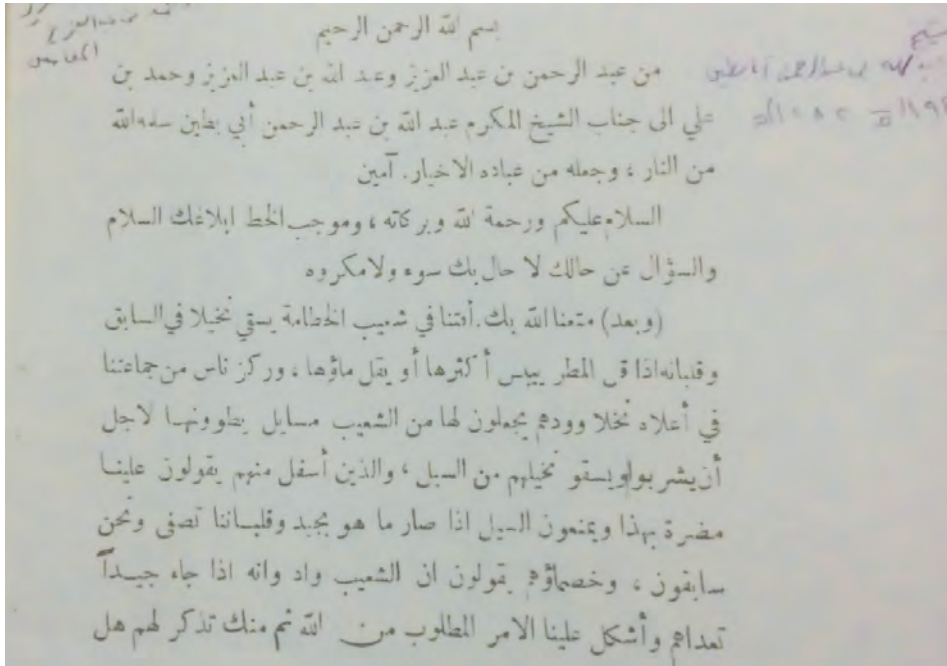 المقامس
بسم الله الرحمن الرحيم
من عبد الرحمن بن عبد العزيز وعبد الله بن عبد العزيز وحمد بن
علي الى جناب الشيخ المكرم عبد الله بن عبد الرحمن أبي بطين سلمه الله
من النار ، وجعله من عباده الاخيار. آمين
السلام عليكم ورحمة الله وبركاته ، وموجب الخط ابلاغك السلام
والسؤال عن حالك لا حال بك سوء ولا مكروه
(وبعد) متعنا الله بك. أفتنا في شعيب الخطامة يسقي نخيلا في السابق
وقلبانه اذا قل المطر ييبس أكثرها أو يقل ماؤها ، وركز ناس من جماعتنا
في أعلاه نخلا وودهم يجعلون لها من الشعيب مسايل يطوونها لاجل
أن يشربوا ويسقو نخيلهم من السيل ، والذين أسفل منهم يقولون علينا
مضرة بهذا ويمنعون السيل اذا صار ما هو بجيد وقلباننا تصفى ونحن
سابقون ، وخصماؤهم يقولون ان الشعيب واد وانه اذا جاء جيداً
تعداهم وأشكل علينا الامر المطلوب من الله ثم منك تذكر لهم هل